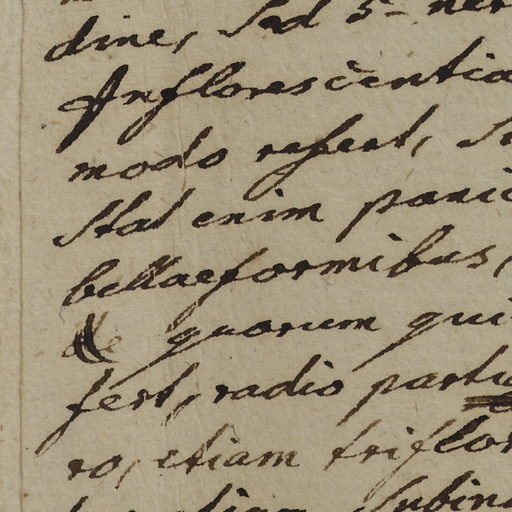 dine, sed 5- ner
Inflorescentia
modo refert, 
Stat enim panic
bellaeformibus,
& quorum qui
fert, radio partia
ro, etiam triflor
Subin